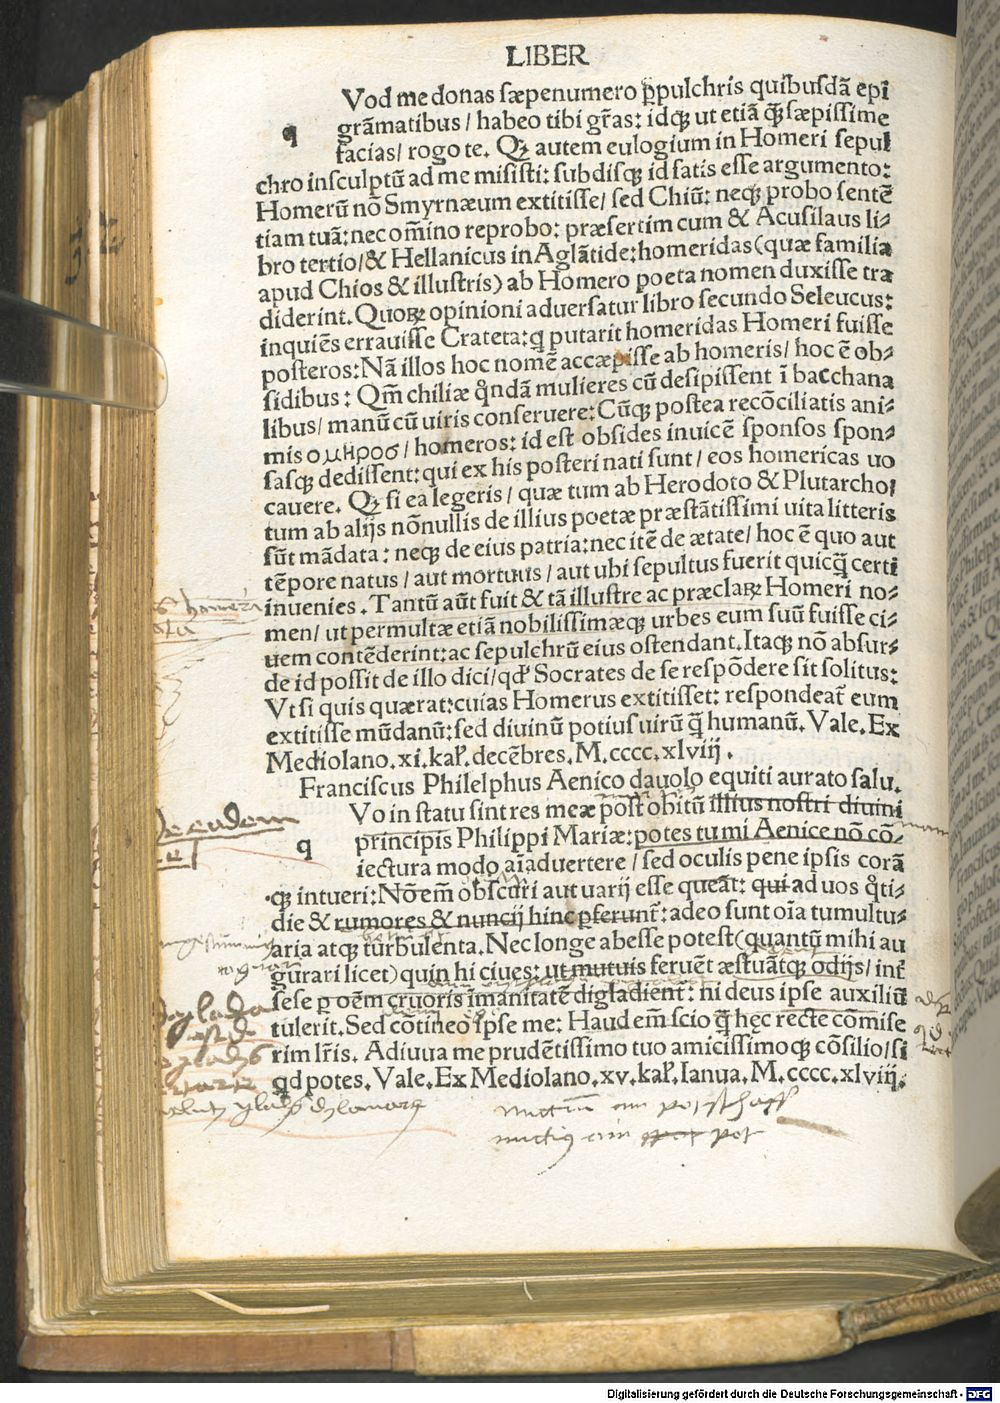 LIBER
q Vod me donas sæpenumero p̱pulchris quibusdã epi
grãmatibus / habeo tibi gr̃as: idqꝫ ut etiã qꝫ̃ sæpissime
facias/ rogo te. Qꝫ autem eulogium in Homeri sepul
chro insculptũ ad me misisti: subdisqꝫ id satis esse argumento:
Homerũ nõ Smyrnæum extitisse/ sed Chiũ: neqꝫ probo sentẽ
tiam tuã: nec om̃ino reprobo: præsertim cum & Acusilaus li⸗
bro tertio/& Hellanicus in Aglãtide: homeridas (quæ familia
apud Chios & illustris) ab Homero poeta nomen duxisse tra
diderint. Quoꝝ opinioni aduersatur libro secundo Seleucus:
inquiẽs errauisse Crateta: q̱ putarit homeridas Homeri fuisse
posteros: Nã illos hoc nomẽ accæpisse ab homeris/ hoc ẽ ob⸗
sidibus: Qm̃ chiliæ q̊ndã mulieres cũ desipissent ĩ bacchana
libus/ manũ cũ uiris conseruere: Cũqꝫ postea recõciliatis ani⸗
mis ομηροσ/ homeros: id est obsides inuicẽ sponsos spon⸗
sasqꝫ dedissent: qui ex his posteri nati sunt/ eos homericas uo
cauere. Qꝫ si ea legeris/ quæ tum ab Herodoto & Plutarcho/
tum ab alijs nõnullis de illius poetæ præstãtissimi uita litteris
sũt mãdata: neqꝫ de eius patria: nec itẽ de ætate/ hoc ẽ quo aut
tẽpore natus/ aut mortuus/ aut ubi sepultus fuerit quicq̃ certi
inuenies. Tantũ aũt fuit & tã illustre ac præclaꝝ Homeri no⸗
men/ ut permultæ etiã nobilissimæqꝫ urbes eum suũ fuisse ci⸗
uem contẽderint: ac sepulchrũ eius ostendant. Itaqꝫ nõ absur⸗
de id possit de illo dici/ qd' Socrates de se respõdere sit solitus:
Vt si quis quærat: cuias Homerus extitisset: respondeat̃ eum
extitisse mũdanũ: sed diuinũ potius uirũ q̃ humanũ. Vale. Ex
Mediolano. xi. kał. decẽbres. M. cccc. xlviij.
Franciscus Philelphus Aenico dauolo equiti aurato salu.
q Vo in statu sint res meæ post obitũ illius nostri diuini
principis Philippi Mariæ: potes tu mi Aenice nõ cõ⸗
iectura modo aĩaduertere/ sed oculis pene ipsis corã
qꝫ intueri: Nõ em̃ obscuri aut uarij esse queãt: qui ad uos q̊ti⸗
die & rumores & nuncij hinc p̱ferunt̃: adeo sunt oĩa tumultu⸗
aria atqꝫ turbulenta. Nec longe abesse potest (quantũ mihi au
gurari licet) quin hi ciues: ut mutuis feruẽt æstuãtqꝫ odijs/ int̃
sese p̱ oẽm cruoris ĩmanitatẽ digladient̃: ni deus ipse auxiliũ
tulerit. Sed cõtineo ipse me: Haud em̃ scio q̃ hęc recte cõmise
rim lr̃is. Adiuua me prudẽtissimo tuo amicissimoqꝫ cõsilio/ si
qd potes. Vale. Ex Mediolano. xv. kał. Ianua. M. cccc. xlviij.
Digitalisierung gefördert durch die Deutsche Forschungsgemeinschaft - DFG